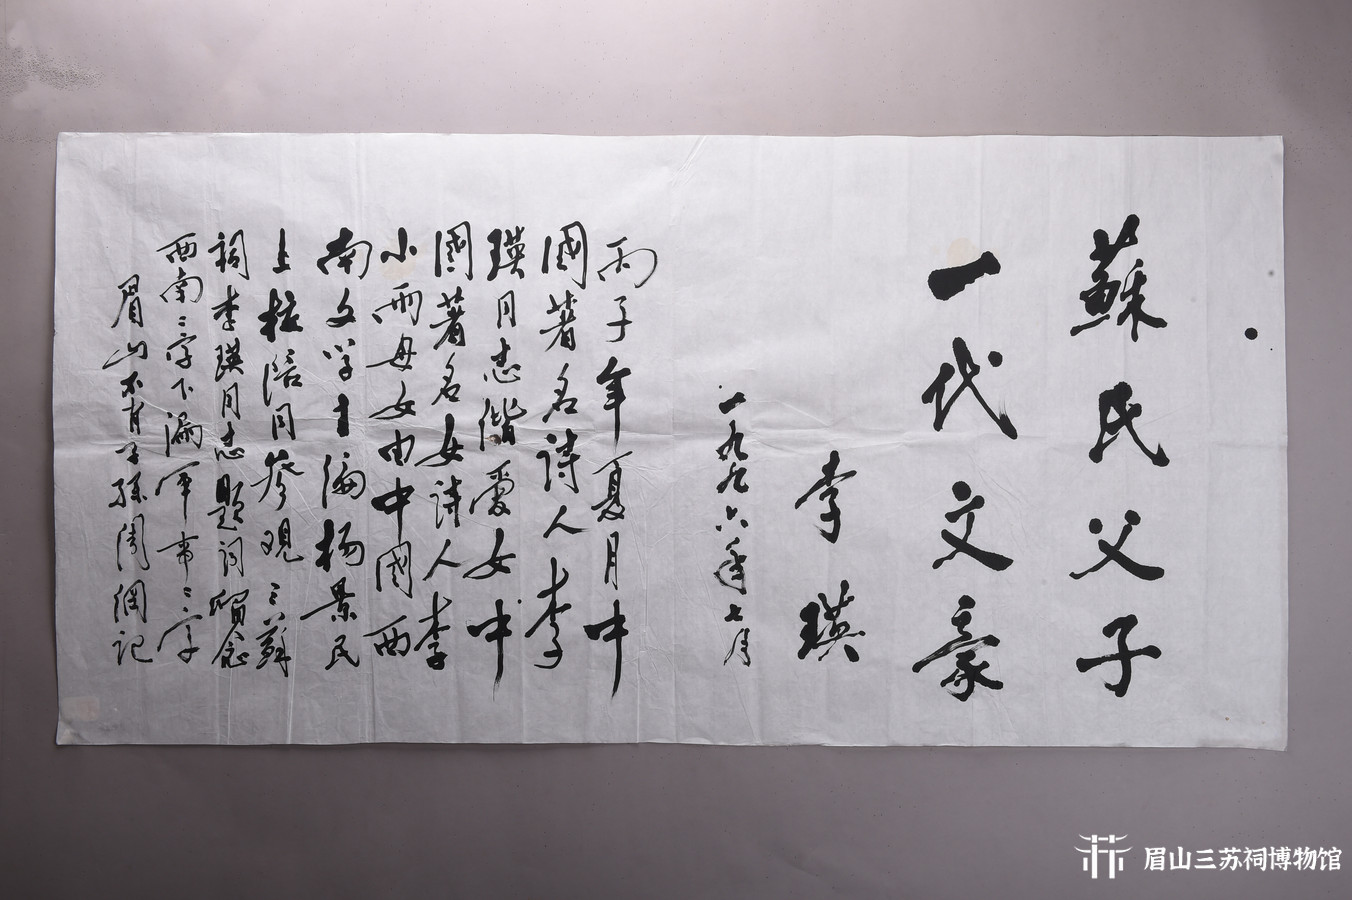 蘇氏父子
一代文豪
李瑛
一九九六年七月
丙子年夏月中
國著名詩人李
瑛同志偕愛女中
國著名女詩人李
小雨母女由中國西
南文学主编杨景民
上校陪同參观三蘇
祠李瑛同志題词留念
西南二字下漏军事二字
眉山不肖子孫闻綱记
眉山三苏祠博物馆